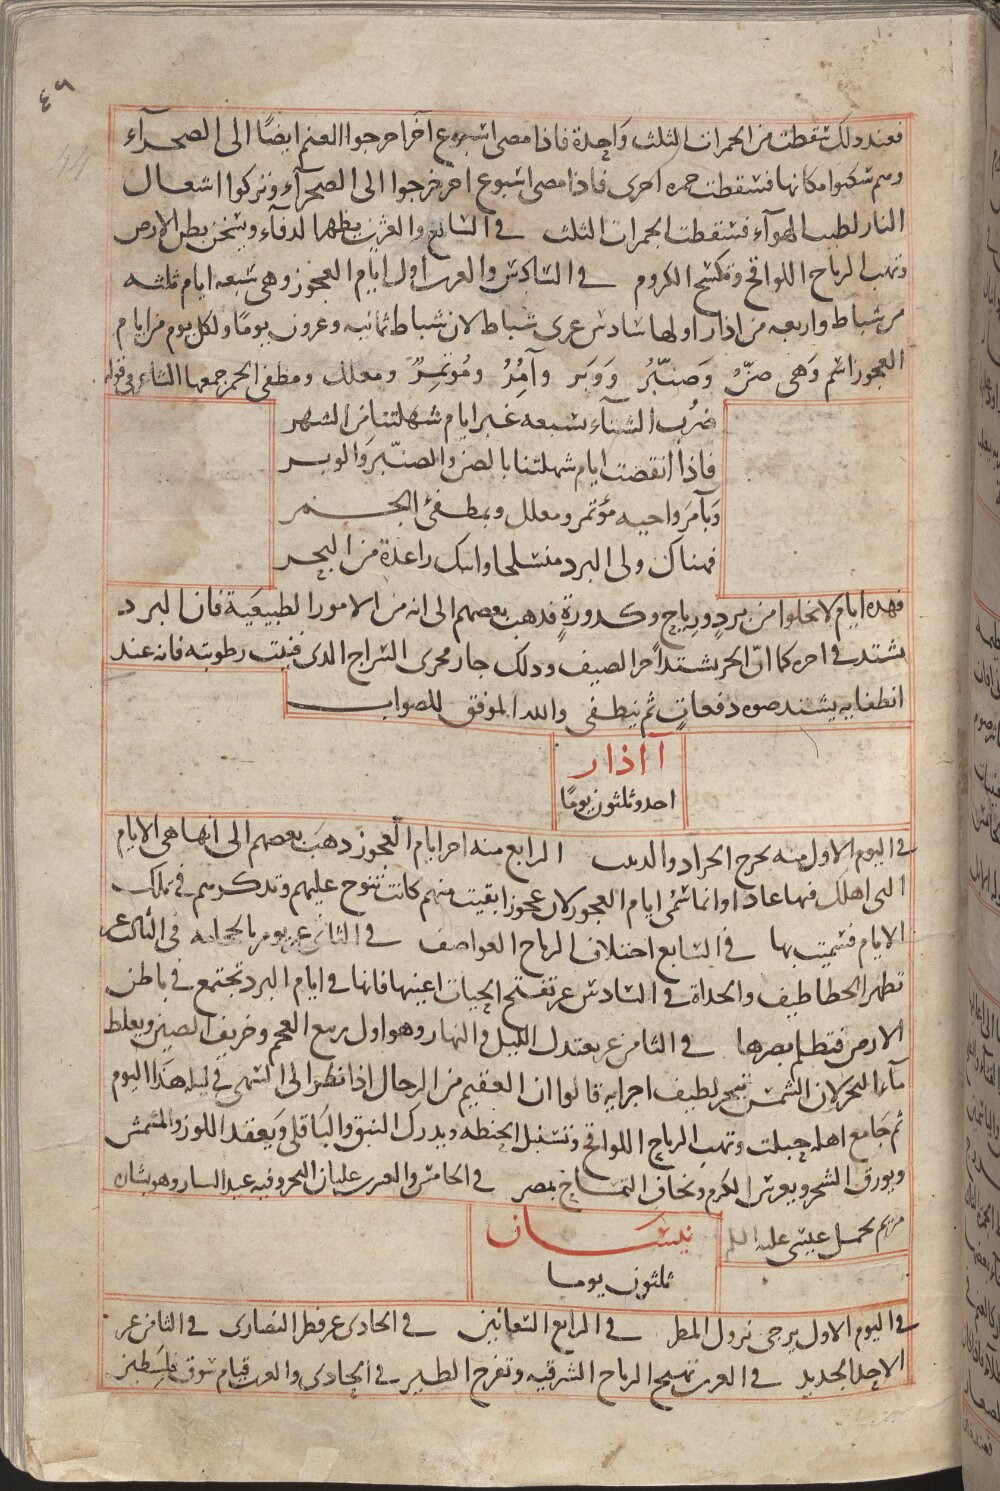 ٤٩
44
فعند ذلك سقطت من الجمرات الثلث واحدة فاذا مضى اسبوع آخر اخرجوا الغنم ايضًا الى الصحرآء
وهم سكنوا مكانها فسقطت جمرة اخرى فاذا مضى اسبوع اخر خرجوا الى الصحرآء وتركوا اشعال
النار لطيب الهوآء فسقطت الجمرات الثلث في السابع والعشرين يظهر الدفآء ويسخن بطن الارض
وتهب الرياح اللواقح وتكسح الكروم في السادس والعشرين اول ايام العجوز وهى سبعه ايام ثلثه
من شباط واربعه من اذار اولها سادس عشرى شباط لان شباط ثمانيه وعشرون يومًا ولكل يوم من ايام
العجوز اسم وَهى صنّ وَصنّبر وَوَبَر وآمِرُ ومُوتمِرٌ ومعلل ومطفى الجمر جمعها الشاعر فى قوله
ضرب الشتآء بسبعه غبر ايام شهلتنا من الشهر
فاذا انقضت ايام شهلتنا بالصن والصنّبر وَالوبر
وَبآمر وَاخيه مؤتمر ومعلل وبمطفئ الجمر
فهناك ولى البرد منسلخا واتتك راعدة من البحر
فهذه ايام لا تخلوا من بردٍ ورياحٍ وكدورةٍ فذهب بعضهم الى انه من الامور الطبيعيَة فان البرد
يشتد في اخره كما انّ الحر يشتد اخر الصيف وذلك جار مجرى السراج الذى فنيت رطوبته فانه عند
انطفايه يشتد ضوه دفعاتٍ ثم ينطفى والله الموفق للصواب
آاذار
احد وثلثون يومًا
في اليوم الاول منه يخرج الجراد والدبيب الرابع منه اخر ايام العجوز ذهبَ بعضهم الى انها هى الايام
التى اهلك فيها عادا وانما سُمّى ايام العجوز لان عجوزا بقيت منهم كانت تنوح عليهم وتذكرهم في تلك
الايام فسميت بها في السابع اختلاف الرياح العواصف في الثانى عشر يومر بالحجامه في الثالث عشر
تظهر الخطاطيف والحداة في السادس عشر تفتح الحيات اعينها فانها في ايام البرد تجتمع في باطن
الارض فتظلم بصرها في الثامن عشر يعتدل الليل والنهار وهو اول ربيع العجم وخريف الصين ويغلظ
مآء البحر لان الشمس تبخر لطيف اجزايه قالوا ان العقيم من الرجال اذا نظر الى السهى في ليله هذا اليوم
ثم جامع اهله حبلت وتهب الرياح اللواقح وتسنبل الحنطه ويدرك النبق والباقلى وَيعقد اللوز والمشمش
ويورق الشجر ويعرش الكرم وتخاف التمساح بمصر في الخامس والعشرين غليان البحر وفيه عيد السبار وهو بشارة
مريم بحمل عيسى عليه السلم
نيسان
ثلثون يوما
في اليوم الاول يرجى نزول المطر في الرابع السعانين في الحادى عشر فطر النصارى في الثامن عشر
الاحد الجديد في العشرين تهيج الرياح الشرقيه وتفرخ الطير في الحادى والعشرين قيام سوق فلسطين